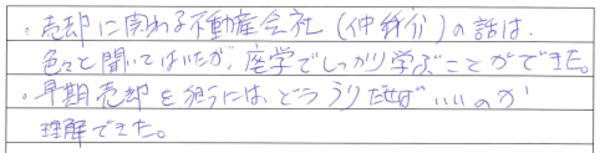 ・売却に関わる不動産会社(仲介)の話は、
色々と聞いてはいたが、座学でしっかり学ぶことができた。
・早期売却を狙うには、どううりだせばいいのか
理解できた。